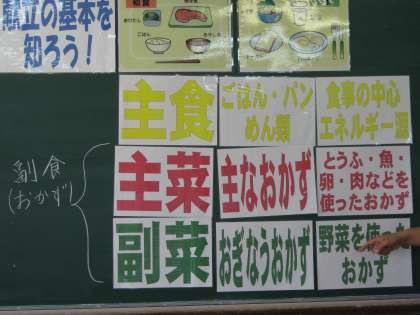 献立の基本を
知ろう！
和食
ごはん
主食
ごはん・パン
めん類
食事の中心
エネルギー源
副食
(おかず)
主菜
主なおかず
とうふ・魚・
卵・肉などを
使ったおかず
副菜
おぎなうおかず
野菜を使った
おかず